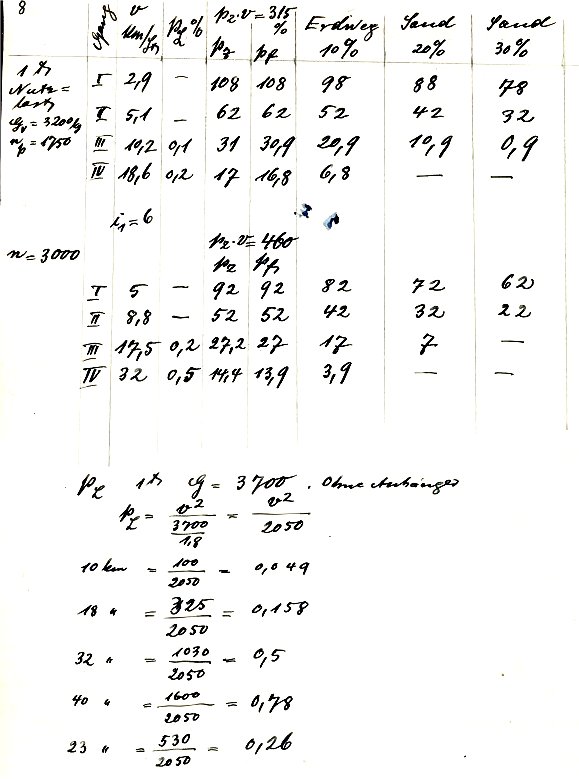 8
Gang v km/h pL% pz·v=315 % Erdweg Sand Sand
pz pf 10% 20% 30%
1 to Nutz=last I 2,9 — 108 108 98 88 78
Gv = 3200 kg II 5,1 — 62 62 52 42 32
n = 1750 III 10,2 0,1 31 30,9 20,9 10,9 0,9
IV 18,6 0,2 17 16,8 6,8 — —
i1 = 6
n = 3000 pz·v = 460
pz pf
I 5 — 92 92 82 72 62
II 8,8 — 52 52 42 32 22
III 17,5 0,2 27,2 27 17 7 —
IV 32 0,5 14,4 13,9 3,9 — —
pL 1 to G = 3700. Ohne Anhänger
pL = v²/(3700/1,8) = v²/2050
10 km = 100/2050 = 0,049
18 " = 325/2050 = 0,158
32 " = 1030/2050 = 0,5
40 " = 1600/2050 = 0,78
23 " = 530/2050 = 0,26